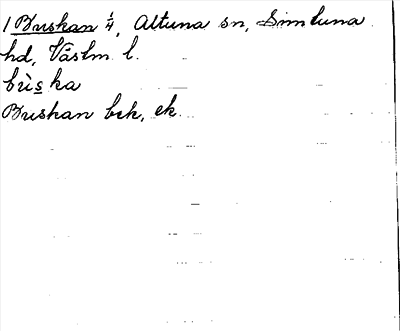 1 Buskan ¼, Altuna sn, Simtuna
hd, Västm l.
bùska
Buskan bek, ek